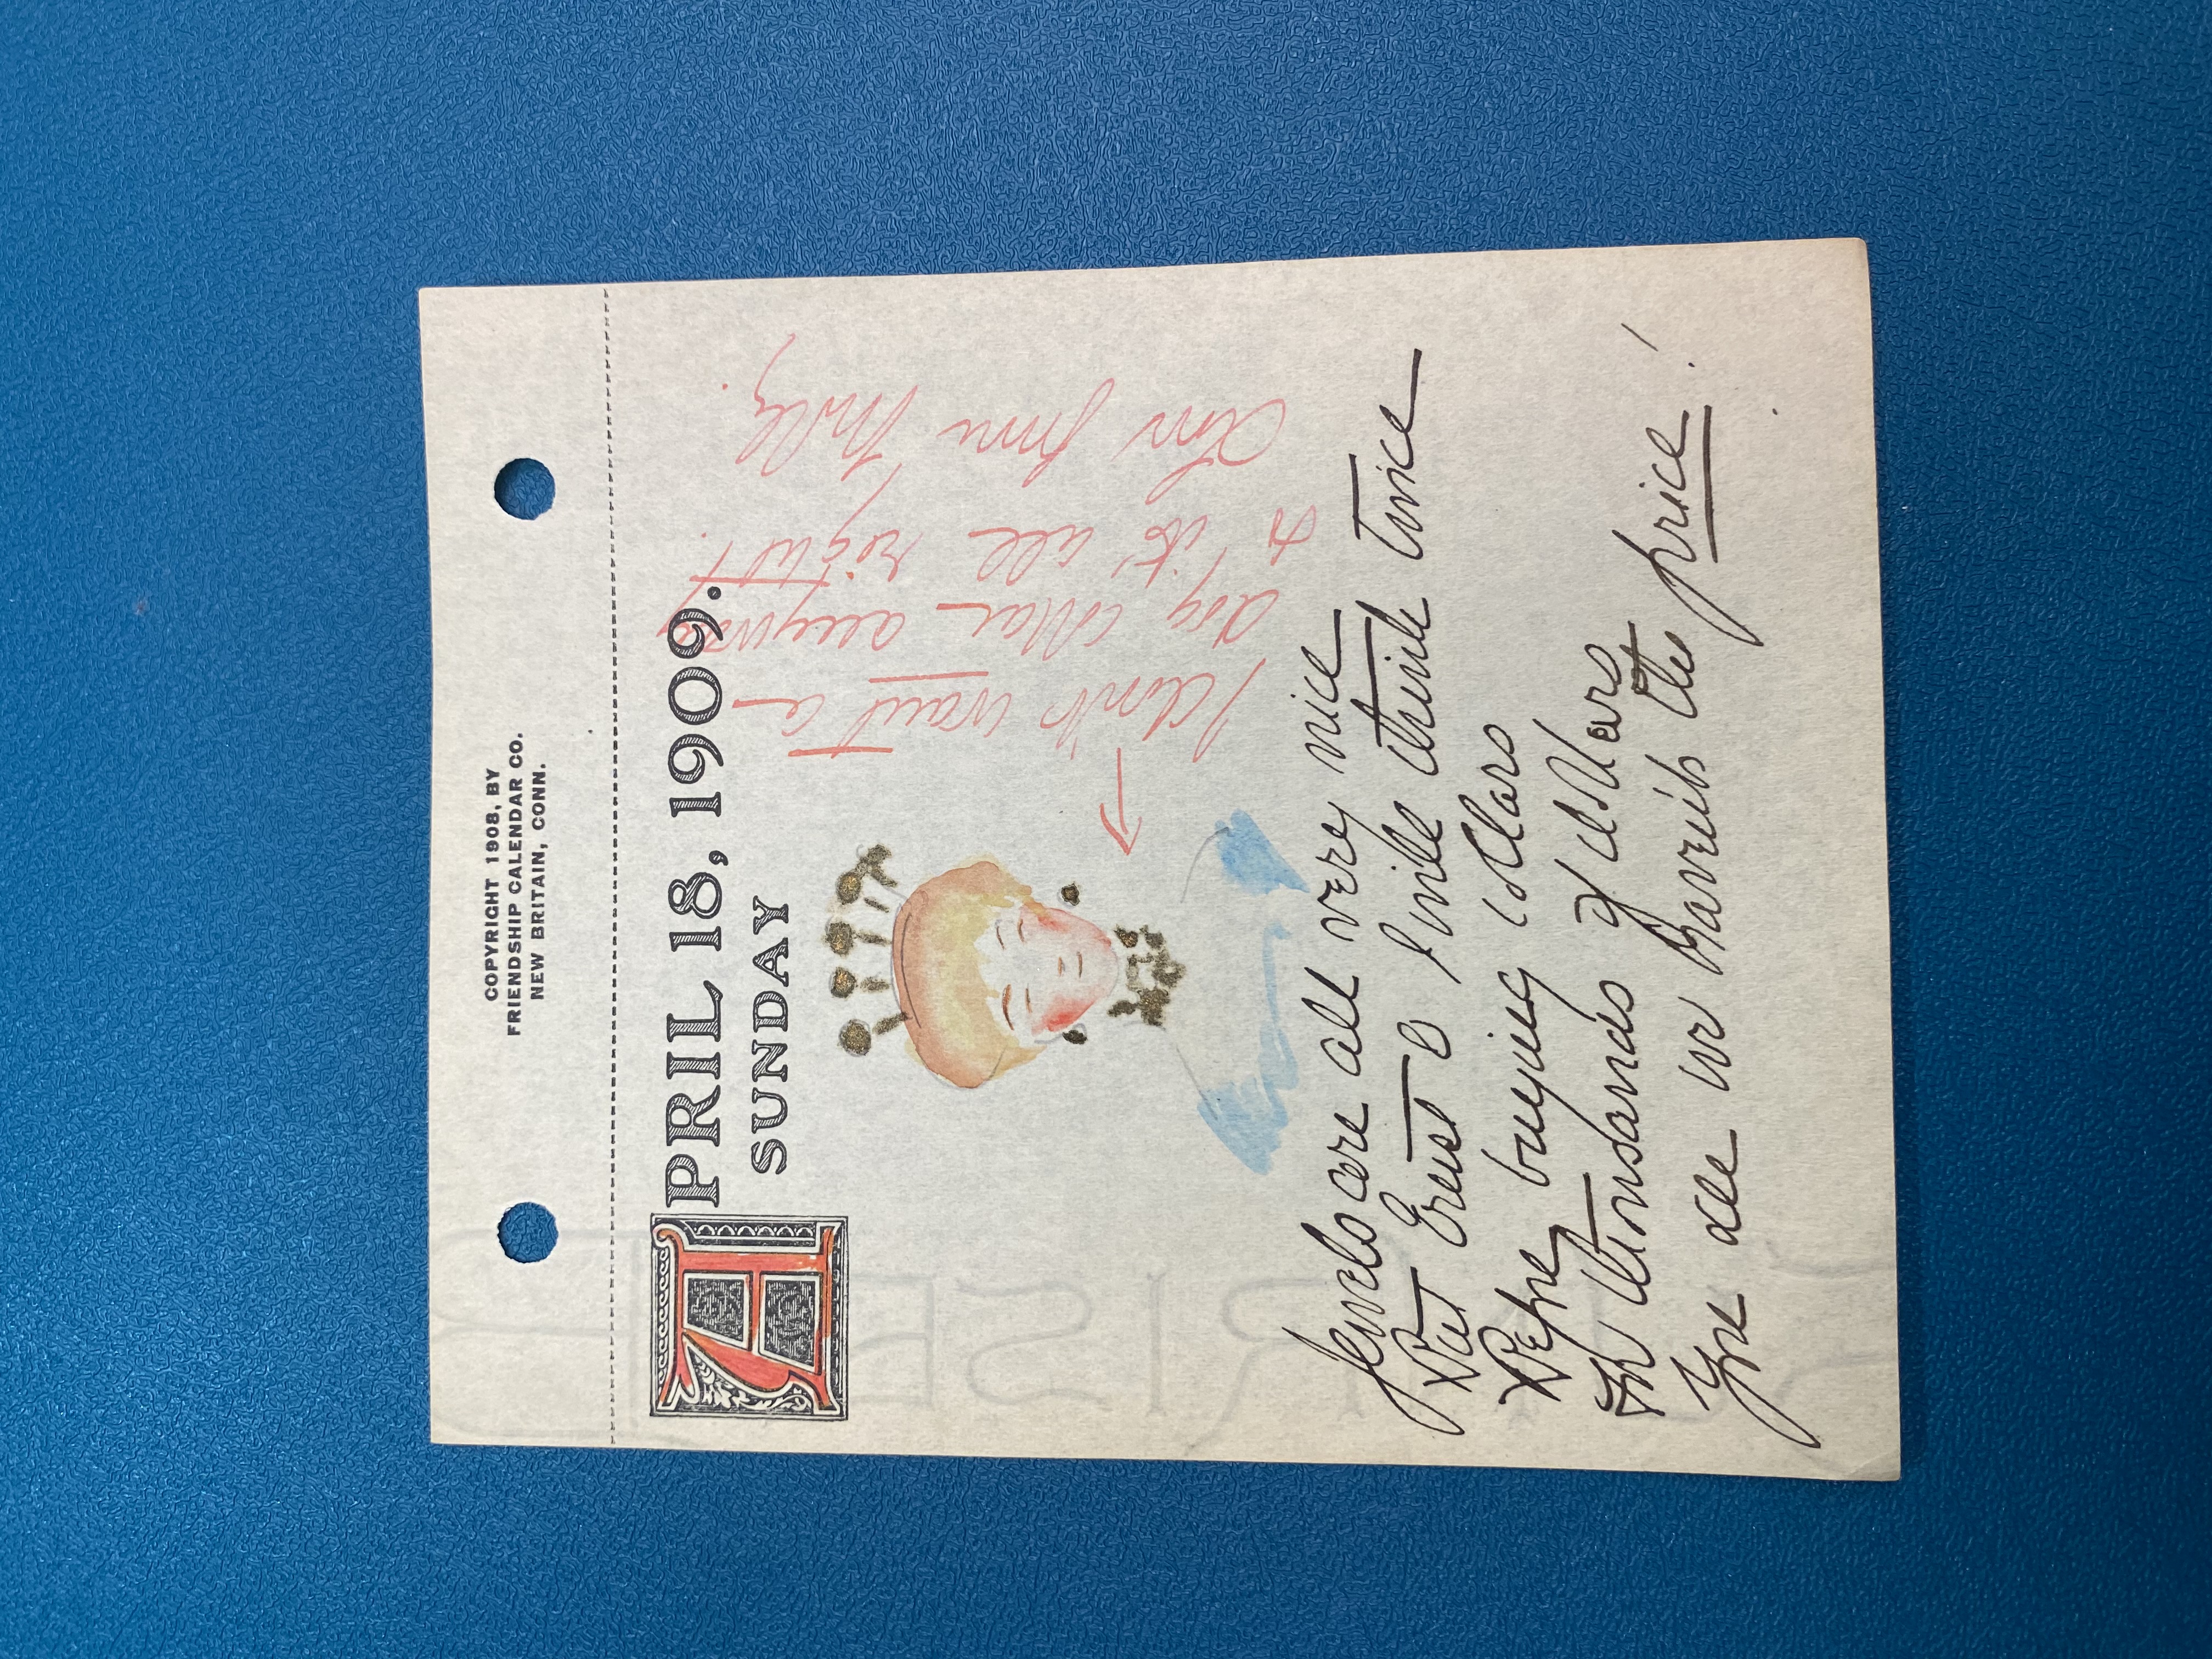 COPYRIGHT 1908, BY
FRIENDSHIP CALENDAR CO.
NEW BRITAIN, CONN.
APRIL 18, 1909.
SUNDAY
I don't want a
dog collar anyway
& it's all right.
Love from Molly.
Jewels are all very nice
But Ernest & I will think twice
Before buying collars
For thousands of dollars
You see we haven't the price!